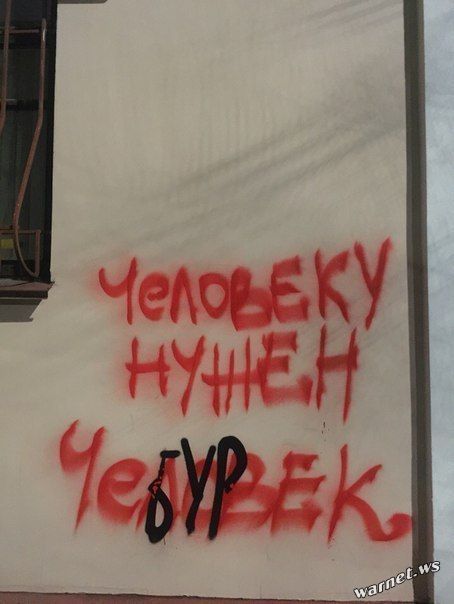 ЧеЛОВЕКУ
НУЖЕН
ЧебУРЕК
warnet.ws